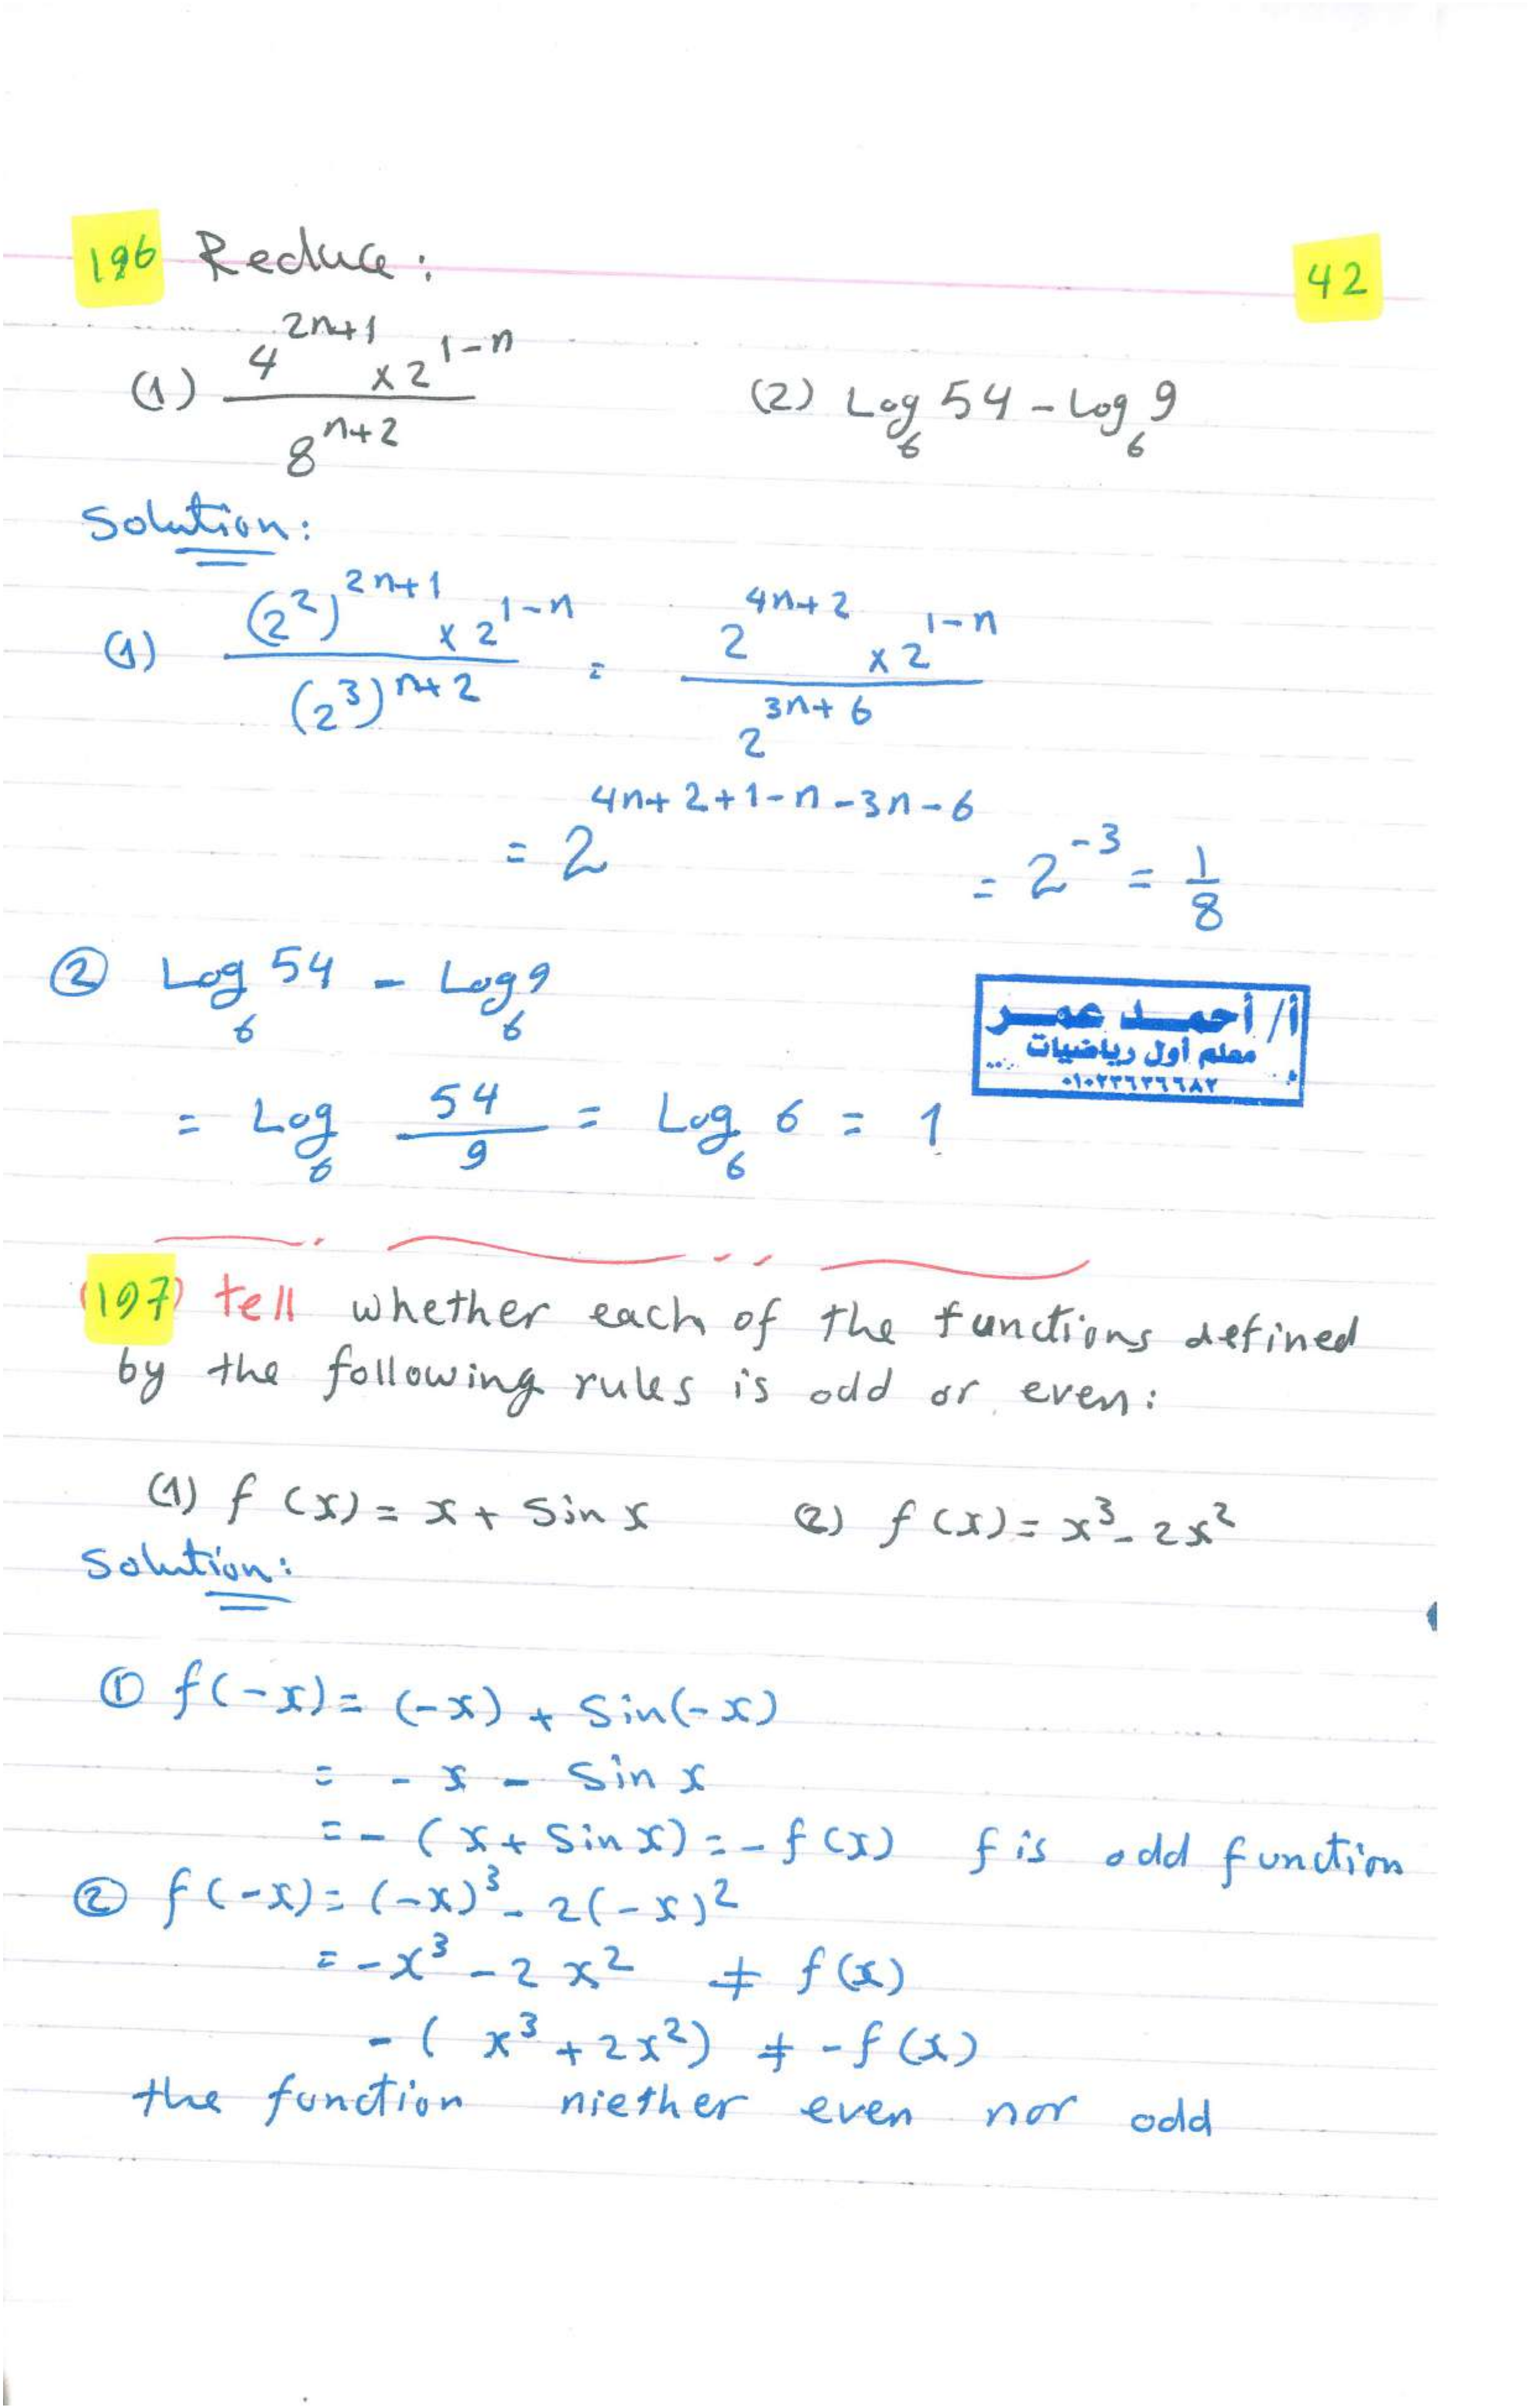 196 Reduce: 42
(1) 4^(2n+1) × 2^(1-n) / 8^(n+2) (2) Log₆ 54 - Log₆ 9
Solution:
(1) (2²)^(2n+1) × 2^(1-n) / (2³)^(n+2) = 2^(4n+2) × 2^(1-n) / 2^(3n+6)
= 2^(4n+2+1-n-3n-6) = 2^(-3) = 1/8
② Log₆ 54 - Log₆ 9
= Log₆ 54/9 = Log₆ 6 = 1
أ/ أحمد عمر
معلم أول رياضيات
(197) tell whether each of the functions defined
by the following rules is odd or even:
(1) f(x) = x + Sin x (2) f(x) = x³ - 2x²
Solution:
① f(-x) = (-x) + Sin(-x)
= - x - Sin x
= - (x + Sin x) = - f(x) f is odd function
② f(-x) = (-x)³ - 2(-x)²
= -x³ - 2x² ≠ f(x)
- (x³ + 2x²) ≠ -f(x)
the function niether even nor odd